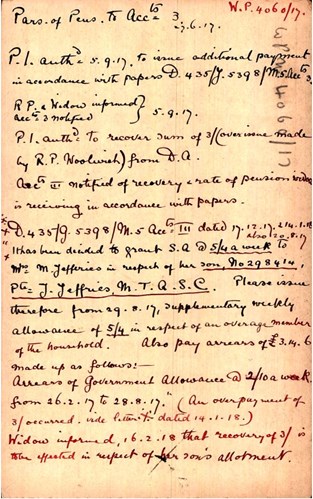 W.P. 4060/17.
Pars. of Pens. to Accts 3
.6.17.
P.I. authd 5.9.17. to issue additional payment
in accordance with papers D.435/J.5398/M.5 Accts 3.
R P. & Widow informed } 5.9.17.
Accts 3 notified
P.I. authd to recover sum of 3/ (overissue made
by R.P. Woolwich) from D.A.
Accts III notified of recovery & rate of pension widow
is receiving in accordance with papers.
D.435/J.5398/M.5 Accts III dated 17.12.17. & 14.1.18
also 20.8.17
It has been decided to grant S.A @ 5/4 a week to
Mrs M. Jefferies in respect of her son, No 298414,
Pte J. Jeffries, M.T. A.S.C. Please issue
therefore from 29.8.17, supplementary weekly
allowance of 5/4 in respect of an overage member
of the household. Also pay arrears of £3.14.6
made up as follows:—
Arrears of Government Allowance @ 2/10 a week
from 26.2.17 to 28.8.17." (An overpayment of
3/ occurred. vide letter dated 14.1.18.)
Widow informed, 16.2.18 that recovery of 3/ is
to be effected in respect of her son's allotment.
WPW 4060/17